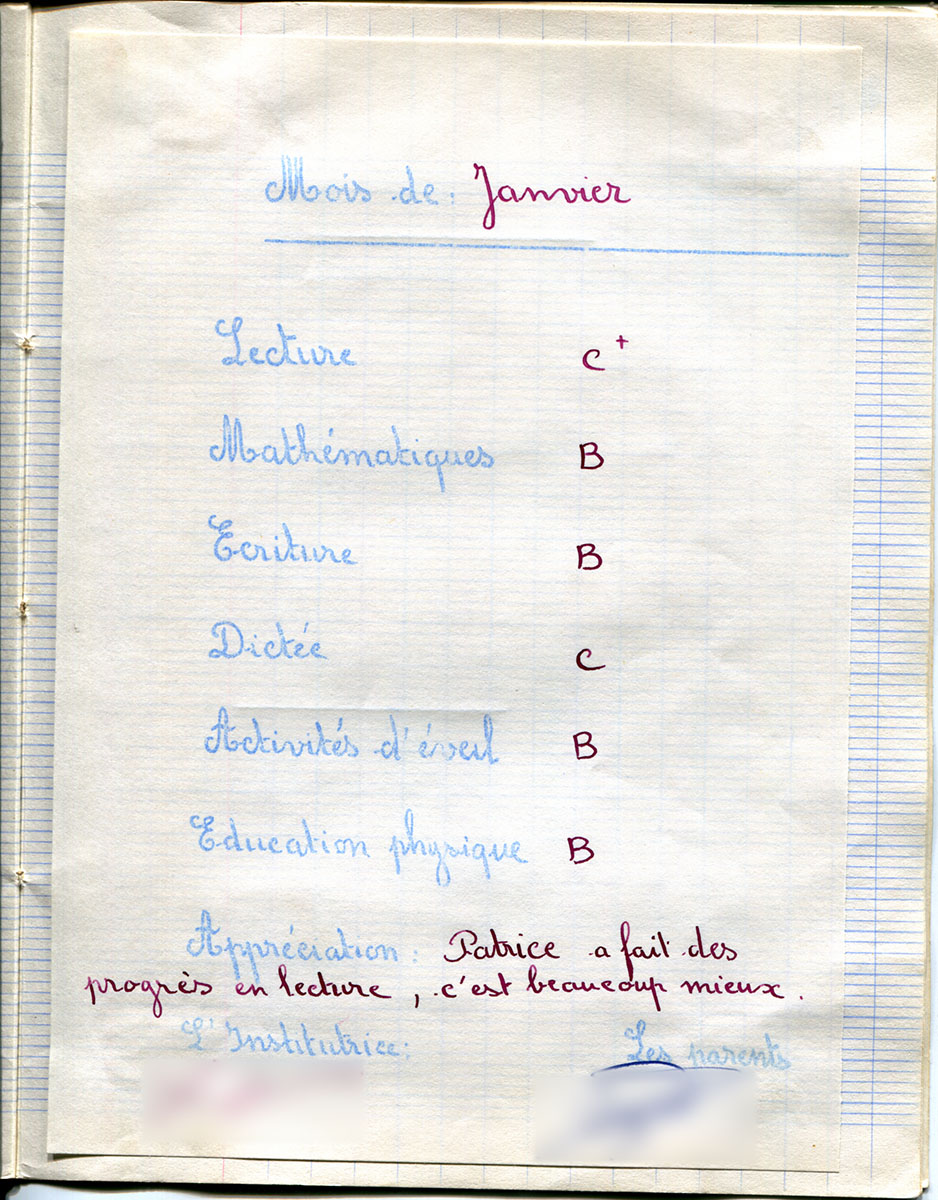 Mois de : Janvier
Lecture C+
Mathématiques B
Ecriture B
Dictée C
Activités d'éveil B
Education physique B
Appréciation : Patrice a fait des
progrès en lecture, c'est beaucoup mieux.
L'Institutrice : Les parents